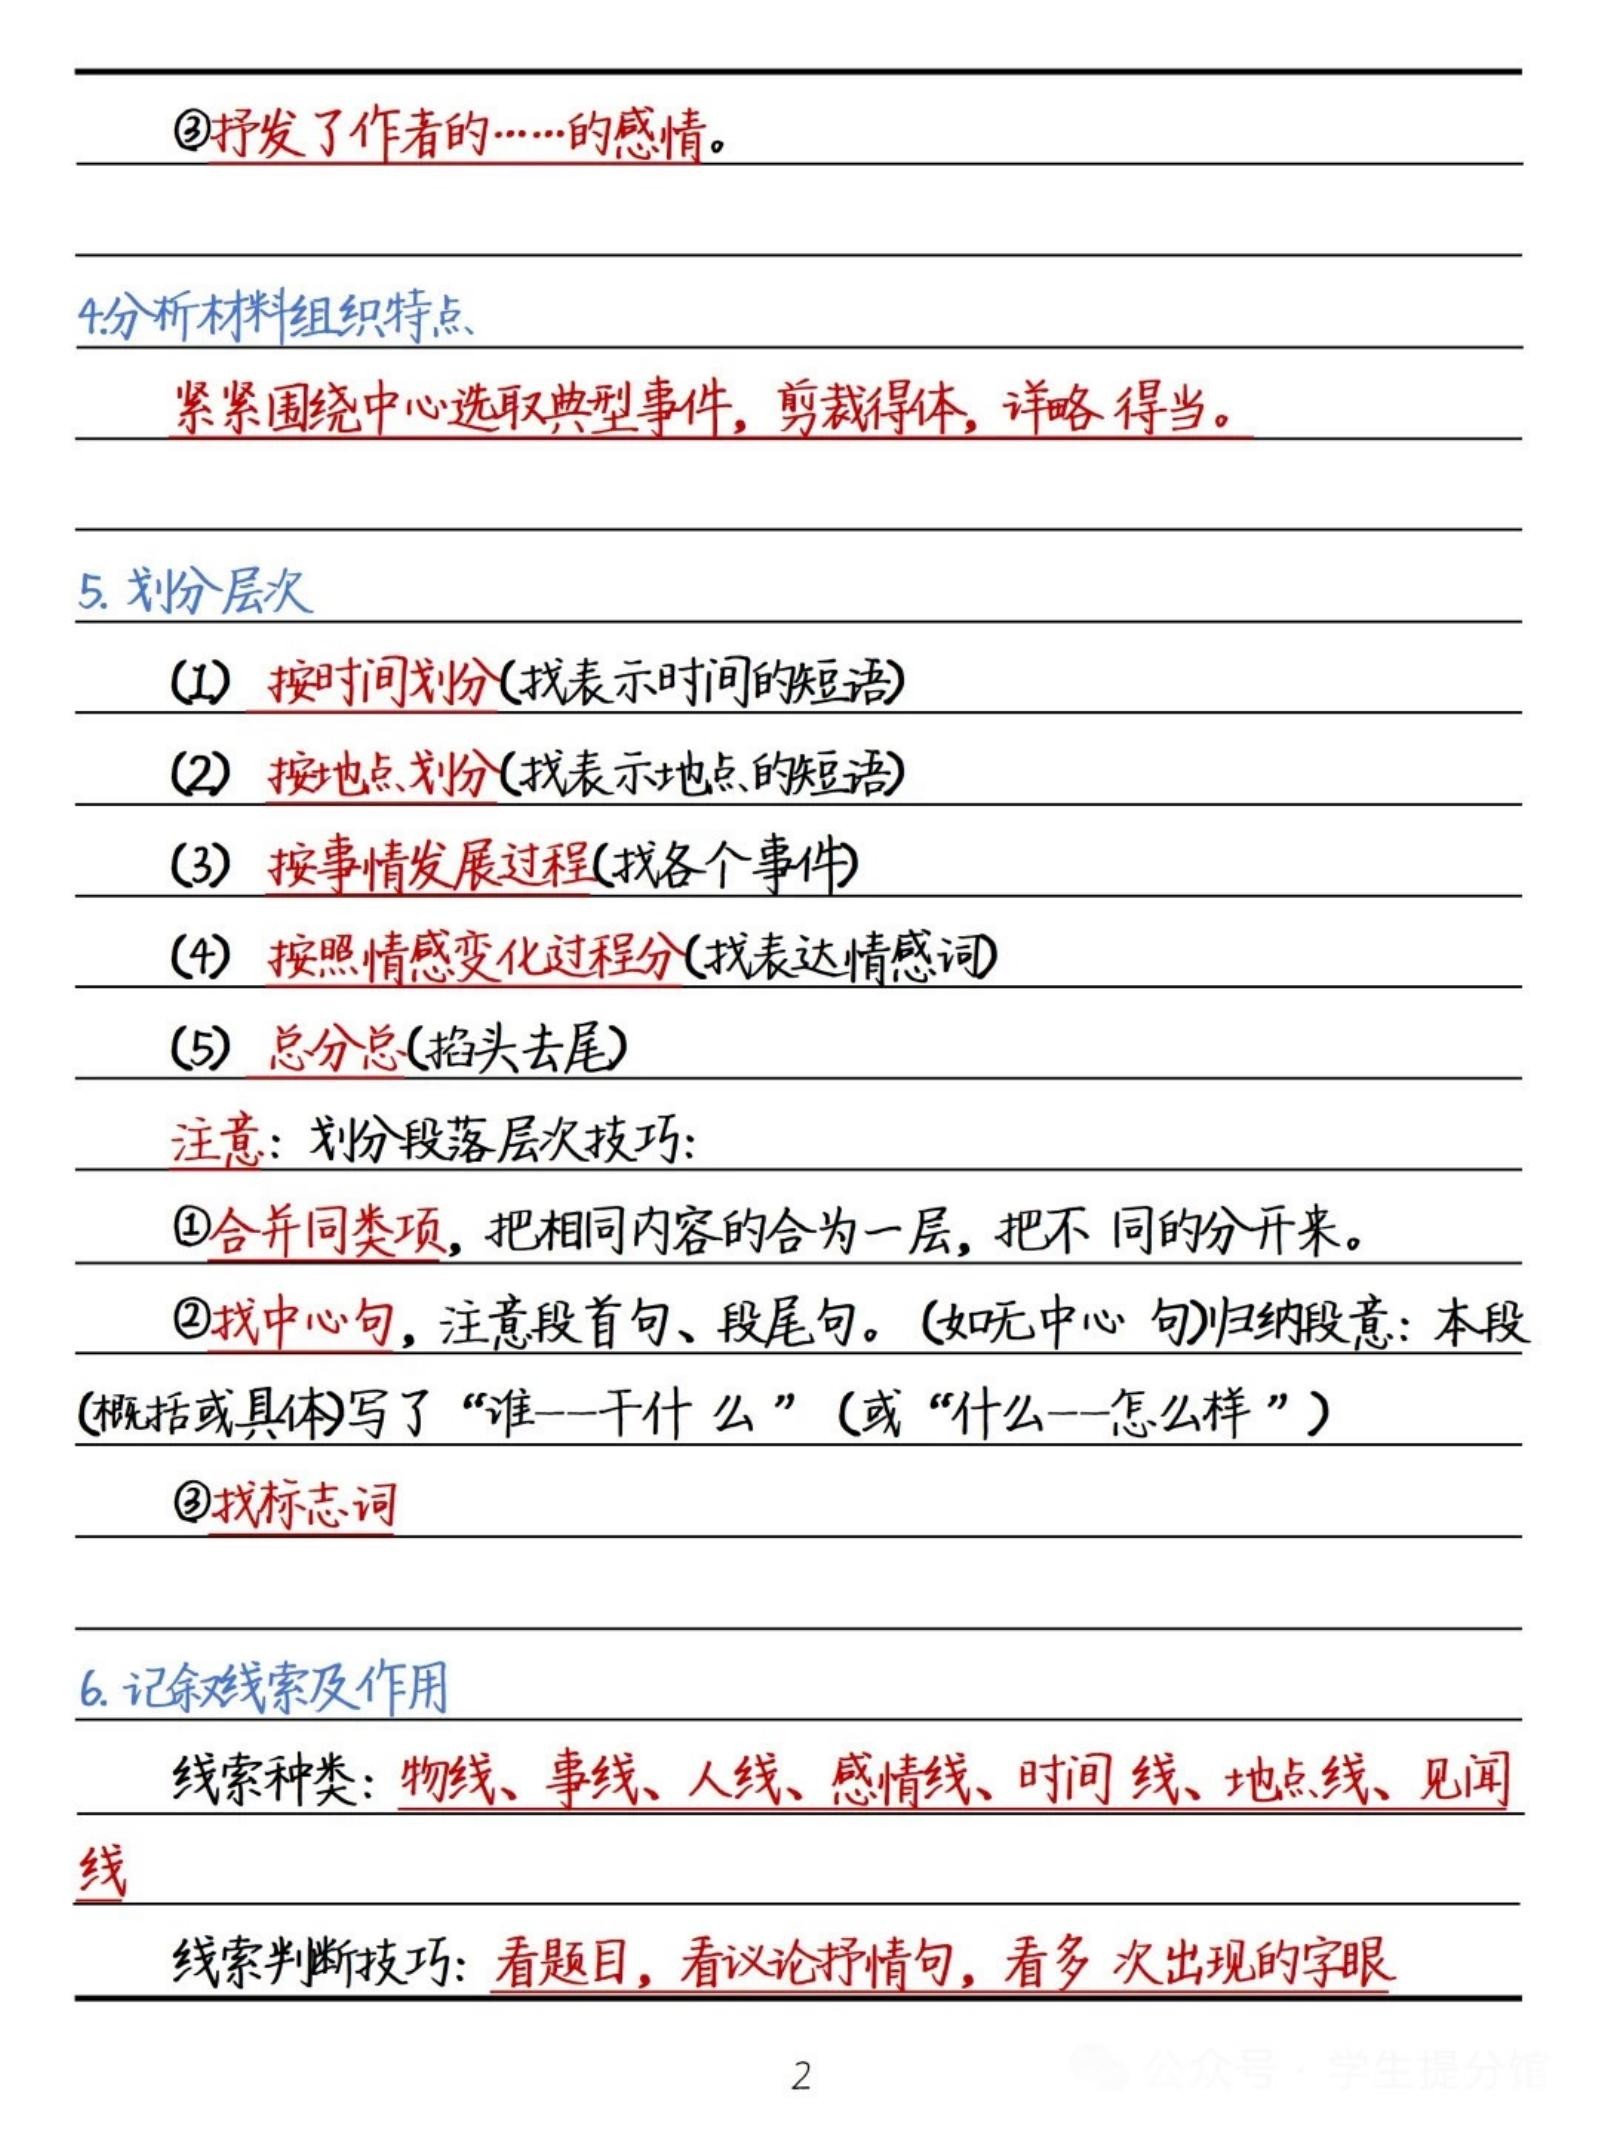 ③抒发了作者的……的感情。
4.分析材料组织特点
紧紧围绕中心选取典型事件，剪裁得体，详略 得当。
5. 划分层次
(1) 按时间划分(找表示时间的短语)
(2) 按地点划分(找表示地点的短语)
(3) 按事情发展过程(找各个事件)
(4) 按照情感变化过程分(找表达情感词)
(5) 总分总(掐头去尾)
注意：划分段落层次技巧：
①合并同类项，把相同内容的合为一层，把不 同的分开来。
②找中心句，注意段首句、段尾句。(如无中心 句)归纳段意：本段
(概括或具体)写了“谁——干什 么”(或“什么——怎么样”)
③找标志词
6. 记叙线索及作用
线索种类：物线、事线、人线、感情线、时间 线、地点线、见闻
线
线索判断技巧：看题目，看议论抒情句，看多 次出现的字眼
2
公众号·学生提分馆